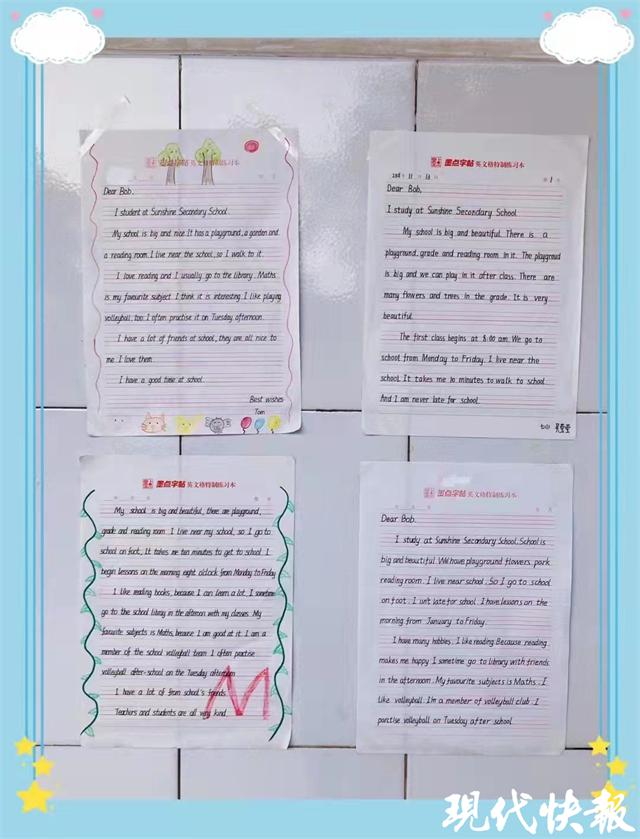 墨点字帖 英文格特制练习本
Dear Bob,
I student at Sunshine Secondary School.
My school is big and nice. It has a playground, a garden and
a reading room. I live near the school, so I walk to it.
I love reading and I usually go to the library. Maths
is my favourite subject I think it is interesting. I like playing
volleyball, too. I often practise it on Tuesday afternoon.
I have a lot of friends at school, they are all nice to
me. I love them.
I have a good time at school.
Best wishes
Tom
墨点字帖 英文格特制练习本
Dear Bob,
I study at Sunshine Secondary School.
My school is big and beautiful. There is a
playground, grade and reading room in it. The playground
is big and we can play in it after class. There are
many flowers and trees in the grade. It is very
beautiful.
The first class begins at 8:00 am. We go to
school from Monday to Friday. I live near the
school. It takes me 10 minutes to walk to school.
And I am never late for school.
墨点字帖 英文格特制练习本
My school is big and beautiful, there are playground,
grade and reading room. I live near my school, so I go to
school on foot, It takes me ten minutes to get to school. I
begin lessons on the morning eight o'clock from Monday to Friday
I like reading books, because I can learn a lot, I sometime
go to the school library in the afternon with my classes. My
favourite subjects is Maths, because I am good at it. I am a
member of the school volleyball team I often practise
volleyball after-school on the Tuesday afternoon
I have a lot of from school's friends.
Teachers and students are all very kind.
M
墨点字帖 英文格特制练习本
Dear Bob,
I study at Sunshine Secondary School. School is
big and beautiful. We have playground flowers, park
reading room. I live near school. So I go to school
on foot. I isn't late for school. I have lessons on the
morning from January to Friday.
I have many hobbies. I like reading Because reading
makes me happy I sometime go to library with friends
in the afternoon. My favourite subjects is Maths. I
like volleyball. I'm a member of volleyball club. I
parctise volleyball on Tuesday after school.
现代快报